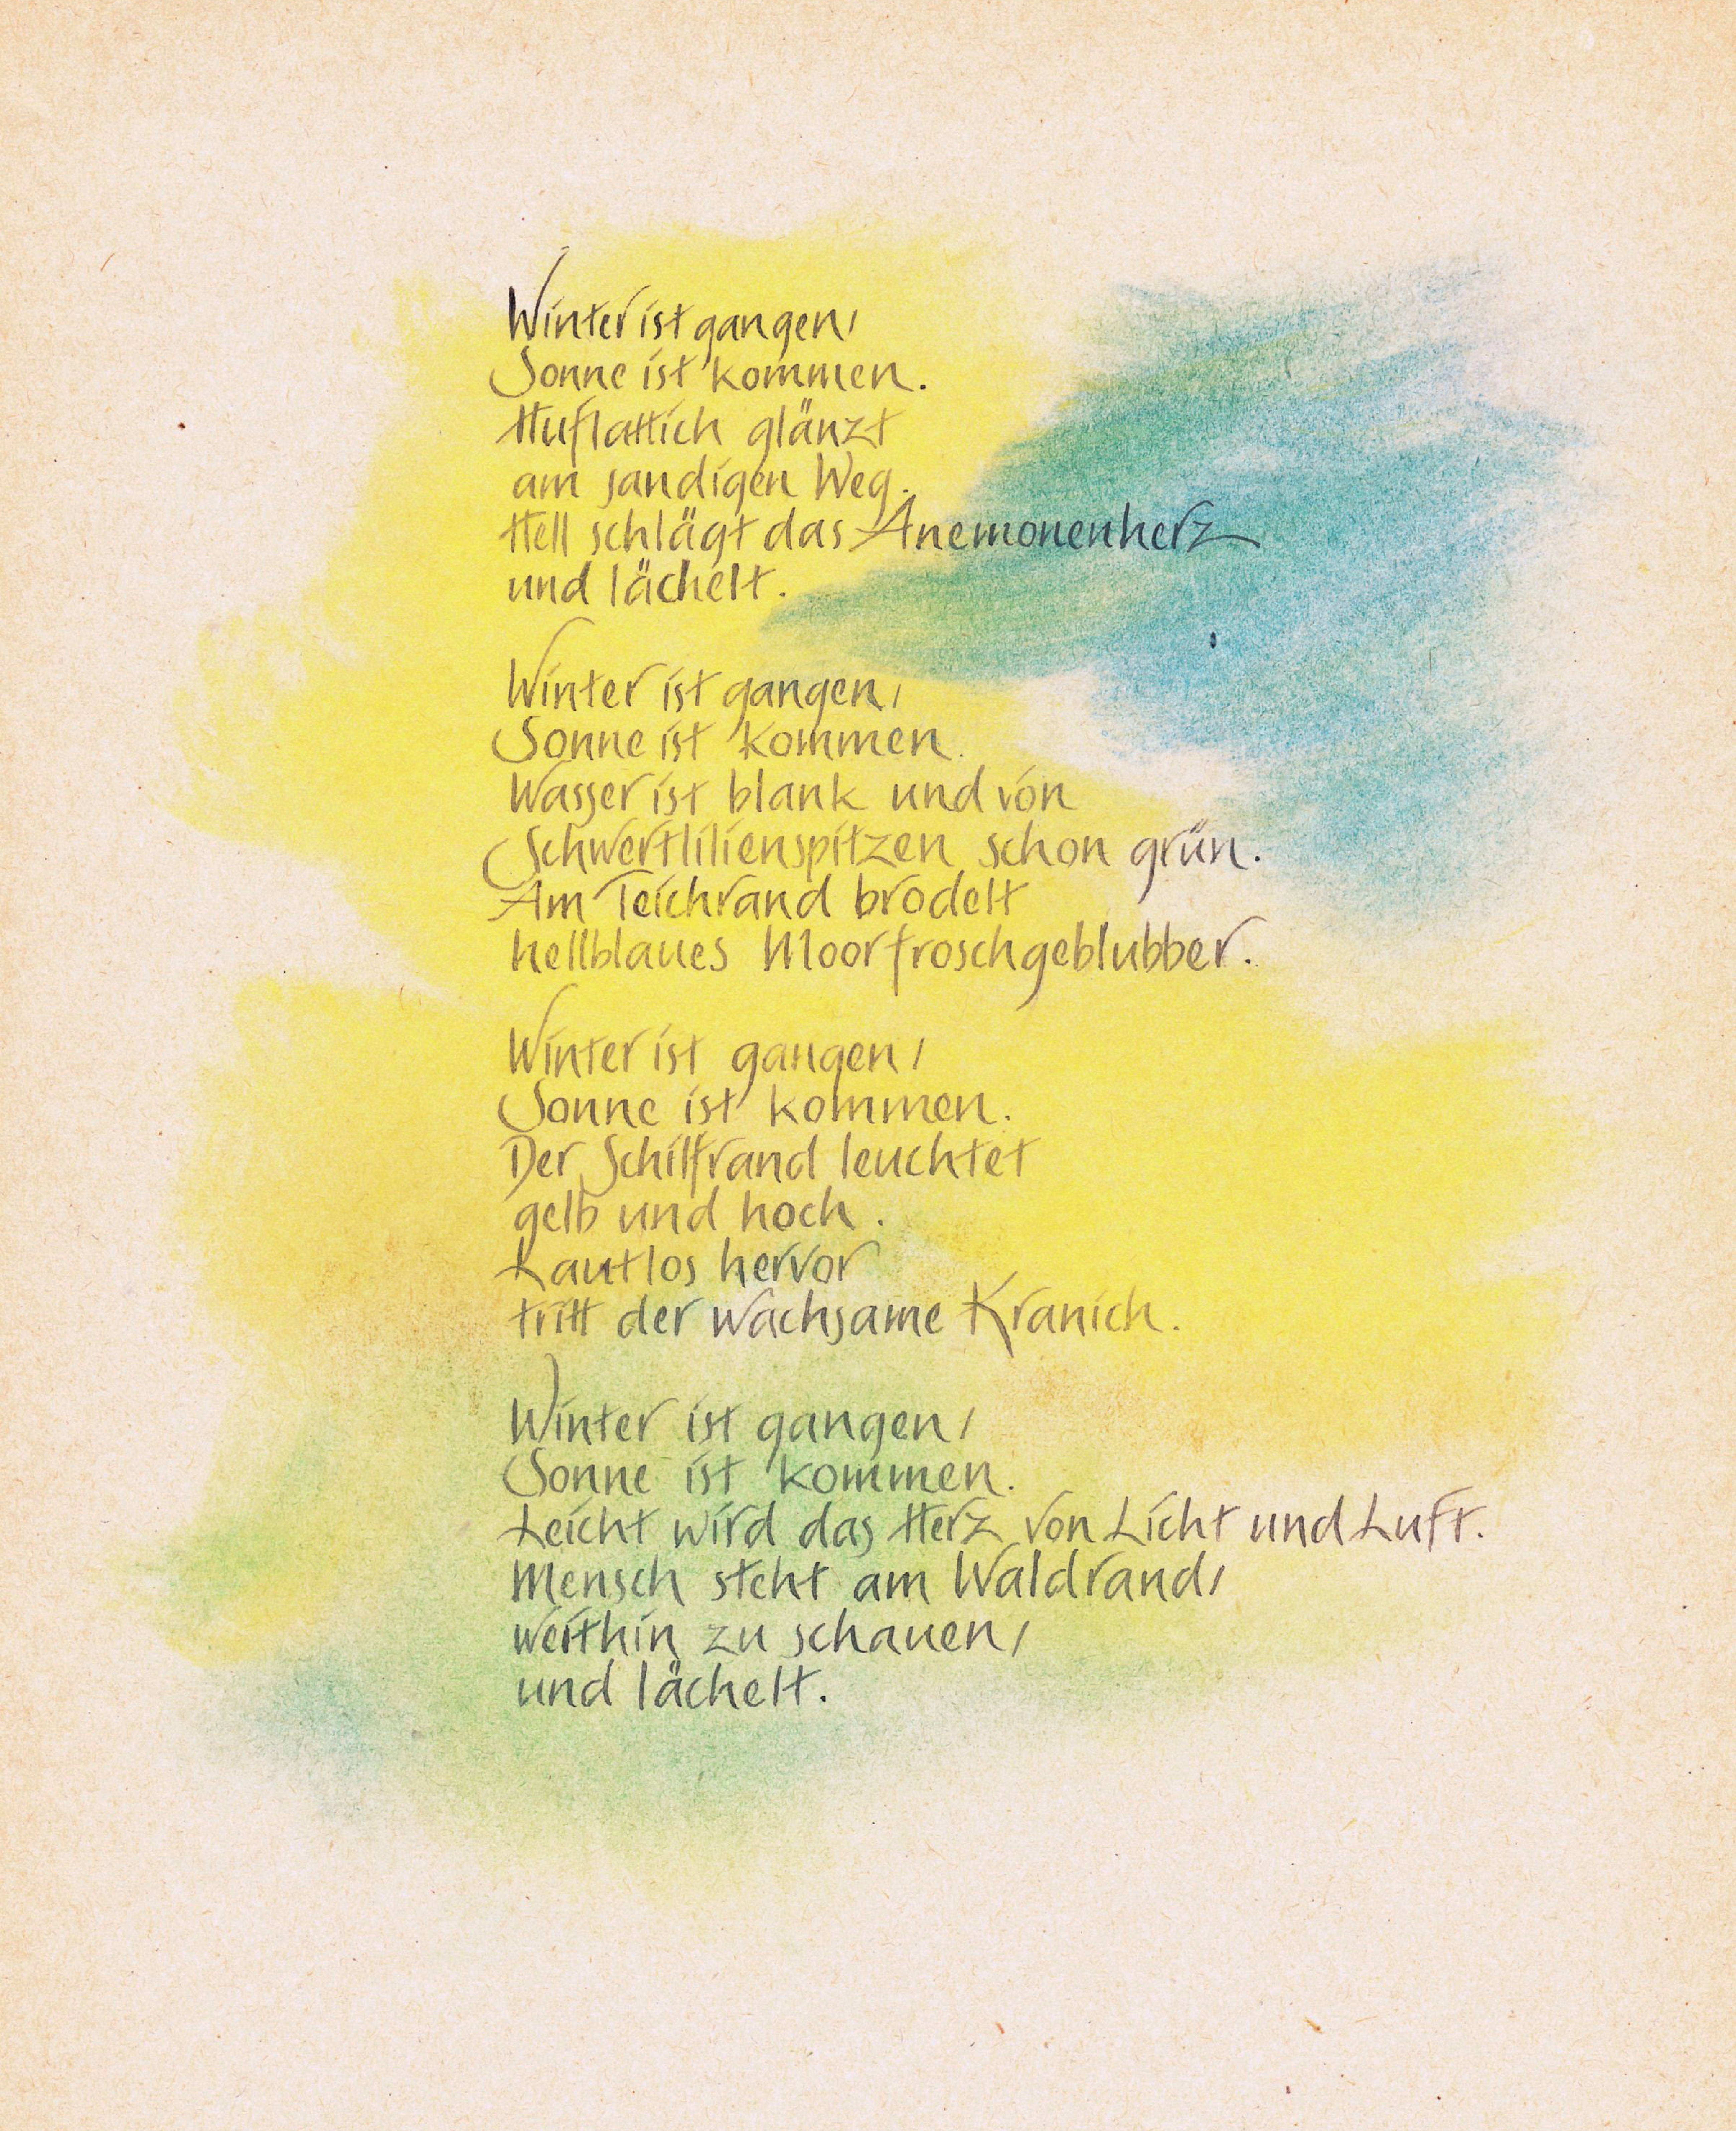 Winter ist gangen,
Sonne ist kommen.
Huflattich glänzt
am sandigen Weg.
Hell schlägt das Anemonenherz
und lächelt.
Winter ist gangen,
Sonne ist kommen.
Wasser ist blank und von
Schwertlilienspitzen schon grün.
Am Teichrand brodelt
hellblaues Moorfroschgeblubber.
Winter ist gangen,
Sonne ist kommen.
Der Schilfrand leuchtet
gelb und hoch.
Lautlos hervor
tritt der wachsame Kranich.
Winter ist gangen,
Sonne ist kommen.
Leicht wird das Herz von Licht und Luft.
Mensch steht am Waldrand,
weithin zu schauen,
und lächelt.